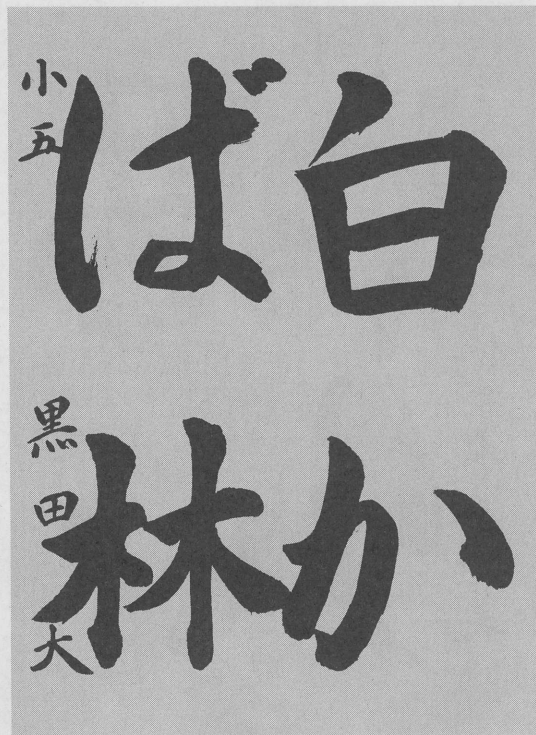 白か
ば林
小五 黒田大